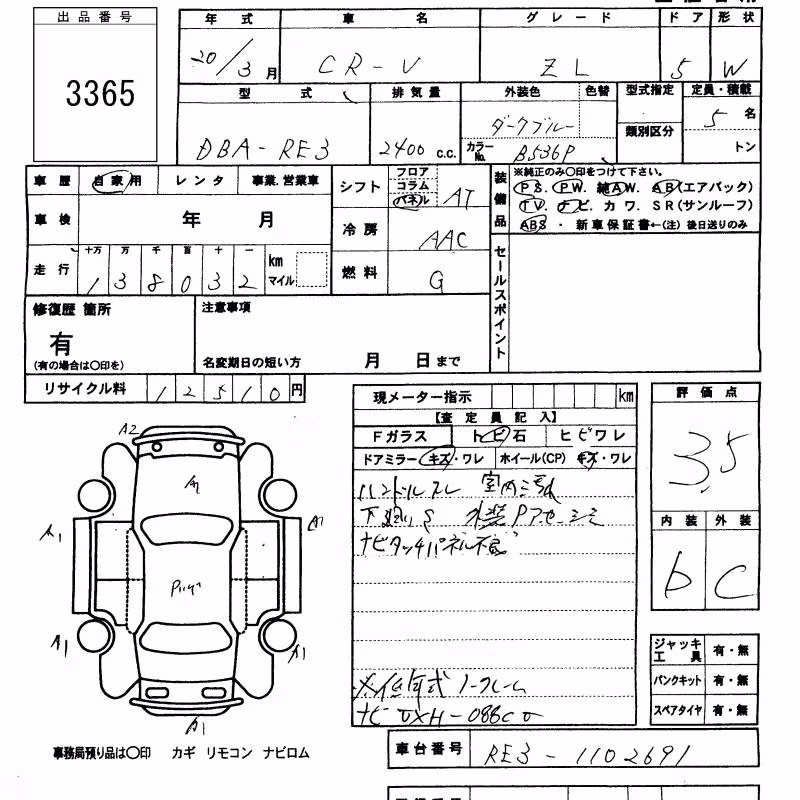 出品番号
3365
年式 車名 グレード ドア 形状
20/3月 CR-V ZL 5 W
型式 排気量 外装色 色替 型式指定 定員・積載
類別区分
DBA-RE3 2400c.c. ダークブルー 5名
カラーNo. B536P トン
車歴 自家用 レンタ 事業.営業車
車検 年 月
走行 十万 万 千 百 十 一
1 3 8 0 3 2 km マイル
シフト フロア コラム パネル AT
冷房 AAC
燃料 G
装備品 ※純正のみ〇印をつけて下さい。
P S. P W. 純A W. A B(エアバック)
T V. ナ ビ. カ ワ. S R(サンルーフ)
ABS ・ 新車保証書←(注) 後日送りのみ
セールスポイント
修復歴 箇所
有
(有の場合は〇印を)
注意事項
名変期日の短い方 月 日まで
リサイクル料 1 2 5 1 0 円
現メーター指示 km
【査定員記入】
Fガラス トビ石 ヒビワレ
ドアミラー キズ・ワレ ホイール(CP) キズ・ワレ
ハンドルスレ 室内
下廻りS
ナビタッチパネル不良
低年式
評価点
3.5
内装 外装
b C
ジャッキ工具 有・無
パンクキット 有・無
スペアタイヤ 有・無
A2
A1
A1
A1
A1
A1
事務局預り品は〇印 カギ リモコン ナビロム
車台番号 RE3-1102691